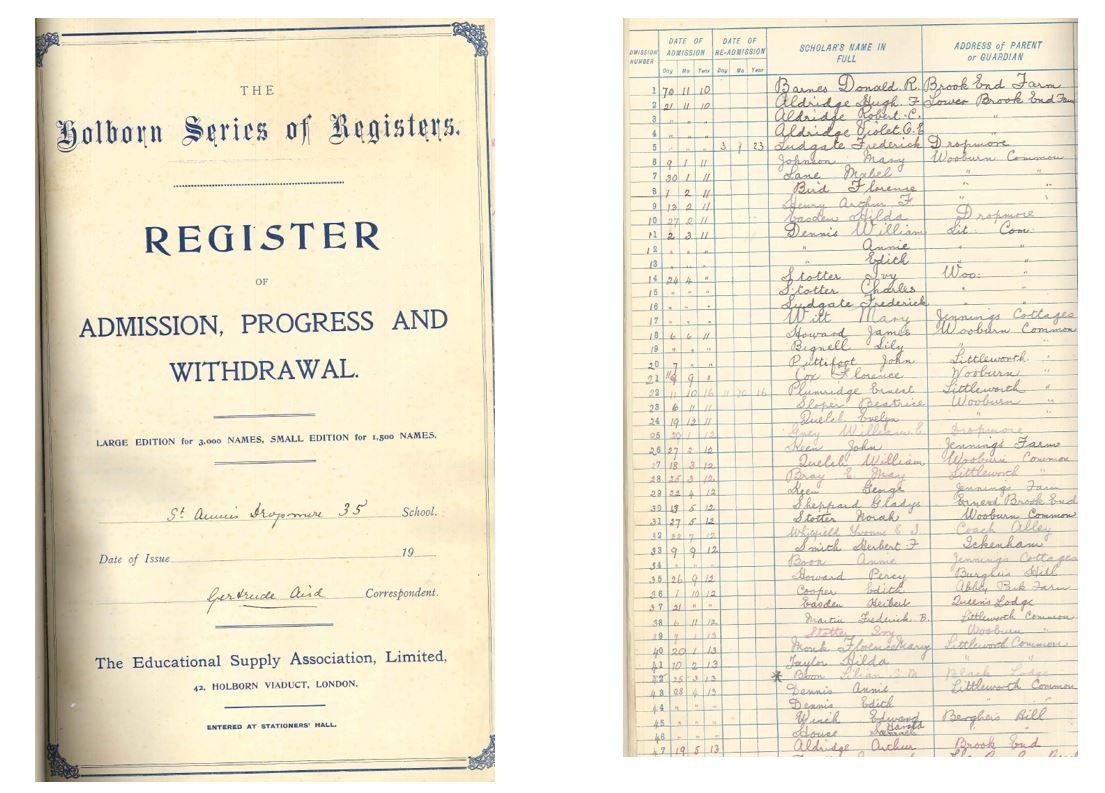 THE
Holborn Series of Registers.
REGISTER
OF
ADMISSION, PROGRESS AND
WITHDRAWAL.
LARGE EDITION for 3,000 NAMES, SMALL EDITION for 1,500 NAMES.
St Annes Dropmore 35 School.
Date of Issue 19
Gertrude Aird Correspondent.
The Educational Supply Association, Limited,
42, HOLBORN VIADUCT, LONDON.
ENTERED AT STATIONERS' HALL.
DMISSION NUMBER DATE OF ADMISSION DATE OF RE-ADMISSION SCHOLAR'S NAME IN FULL ADDRESS of PARENT or GUARDIAN
Day Mo Year Day Mo Year
1 11 10 Barnes Donald R. Brook End Farm
2 21 11 10 Aldridge Hugh F Lower Brook End Farm
3 " " " Aldridge Robert C. "
4 " " " Aldridge Violet
5 " " " 3 9 23 Ludgate Frederick Dropmore
6 9 1 11 Johnson Mary Wooburn Common
7 30 1 11 Lane Mabel " "
8 1 2 11 Bird Florence " "
9 13 2 11 Henry Arthur F " "
10 27 2 11 Easden Hilda Dropmore
11 2 3 11 Dennis William Lit. Com.
12 " " " " Annie " "
13 " " " " Edith " "
14 24 4 " Stotter Ivy Woo: "
15 " " " Stotter Charles " "
16 " " " Ludgate Frederick " "
17 " " " Witt Mary Jennings Cottages
18 6 6 11 Howard James Wooburn Common
19 " " " Bignell Lily " "
20 7 " " Puttifoot John Littleworth "
21 9 " Cox Florence Wooburn "
22 11 10 16 11 16 Plumridge Ernest Littleworth "
23 6 11 11 Sloper Beatrice Wooburn "
24 19 12 11 Quelch Evelyn " "
25 12 Grey William E. Dropmore
26 27 2 12 Keen John Jennings Farm
27 18 3 12 Quelch William Wooburn Common
28 25 3 12 Bray E. May Littleworth "
29 22 4 12 Keen George Jennings Farm
30 13 5 12 Sheppard Gladys Brook End
31 27 5 12 Stotter Norah Wooburn Common
32 7 12 Whitfield Yvonne E J Coach Alley
33 9 9 12 Smith Herbert F Ickenham
34 " " " Boon Annie Jennings Cottages
35 26 9 12 Howard Percy Burghers Hill
36 1 10 12 Cooper Edith Abbey Park Farm
37 21 " " Easden Herbert Queens Lodge
38 6 11 12 Martin Frederick B. Littleworth Common
39 7 1 13 Stotter Ivy Wooburn "
40 20 1 13 Monk Florence Mary Littleworth Common
41 10 2 13 Taylor Hilda " "
25 3 13 Boon Lilian Black Lodge
43 28 4 13 Dennis Annie Littleworth Common
44 " " " Dennis Edith " "
45 " " " Winch Edward Berghers Hill
46 " " " House Harold
47 19 5 13 Aldridge Arthur Brook End